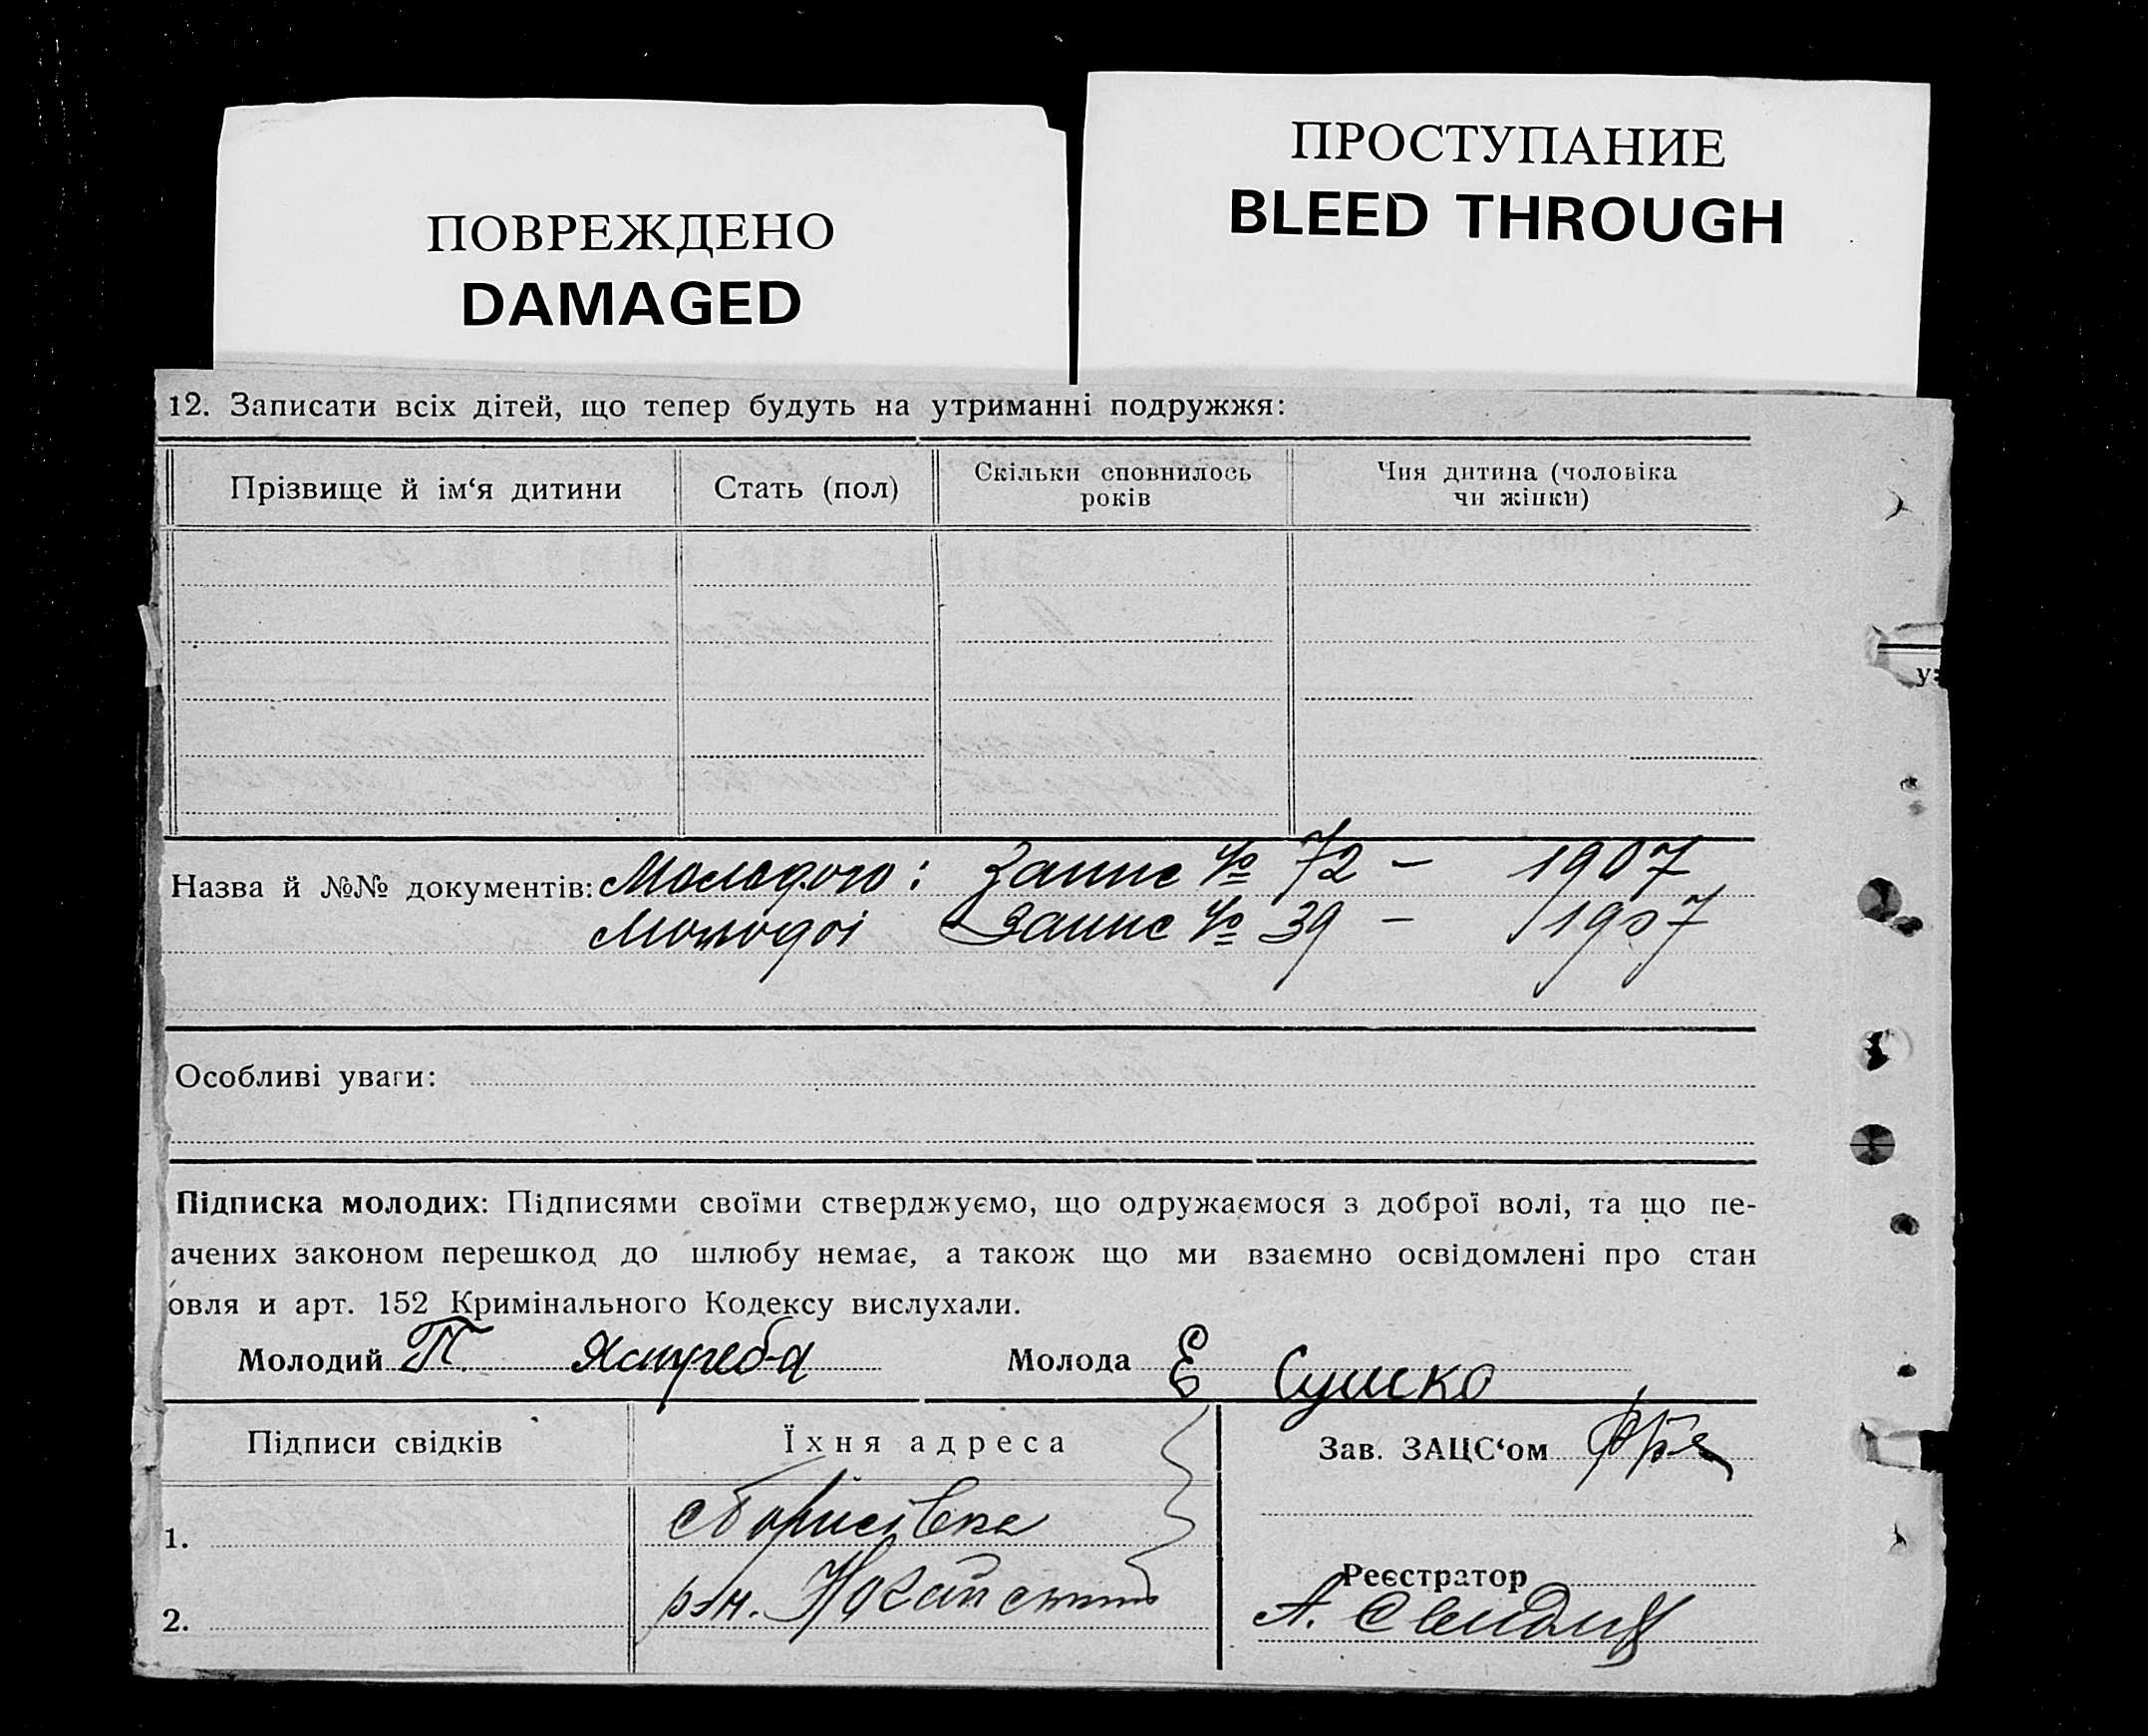 ПОВРЕЖДЕНО
DAMAGED
ПРОСТУПАНИЕ
BLEED THROUGH
12. Записати всіх дітей, що тепер будуть на утриманні подружжя:
Прізвище й ім‘я дитини
Стать (пол)
Скільки сповнилось
років
Чия дитина (чоловіка
чи жінки)
Назва й №№ документів: Молодого: Запис № 72 – 1907
Молодоі Запис № 39 – 1907
Особливі уваги:
Підписка молодих: Підписями своїми стверджуємо, що одружаємося з доброї волі, та що пе-
ачених законом перешкод до шлюбу немає, а також що ми взаємно освідомлені про стан
овля и арт. 152 Кримінального Кодексу вислухали.
Молодий П. Яструеба Молода Е Сушко
Підписи свідків
Їхня адреса
Зав. ЗАЦС‘ом
1.
с Борисівка
Реєстратор
2.
р-н. Ногайський
А.